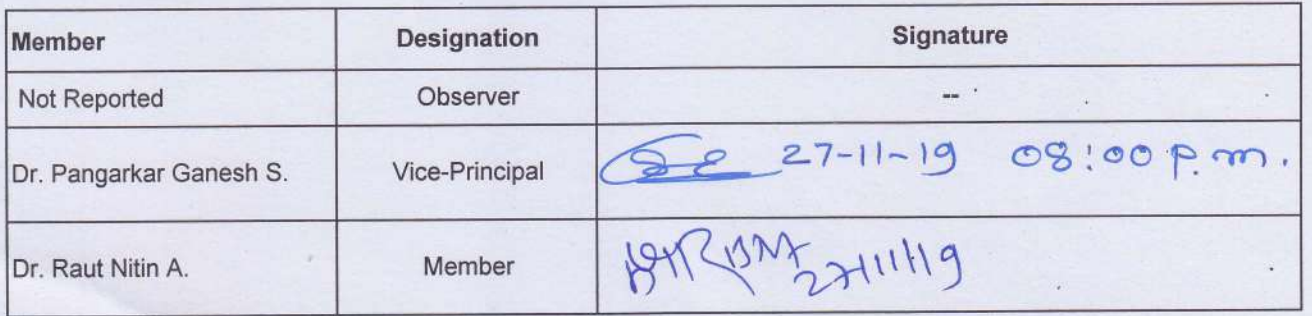 Member Designation Signature
Not Reported Observer --
Dr. Pangarkar Ganesh S. Vice-Principal 27-11-19 08:00 P.m.
Dr. Raut Nitin A. Member 27/11/19